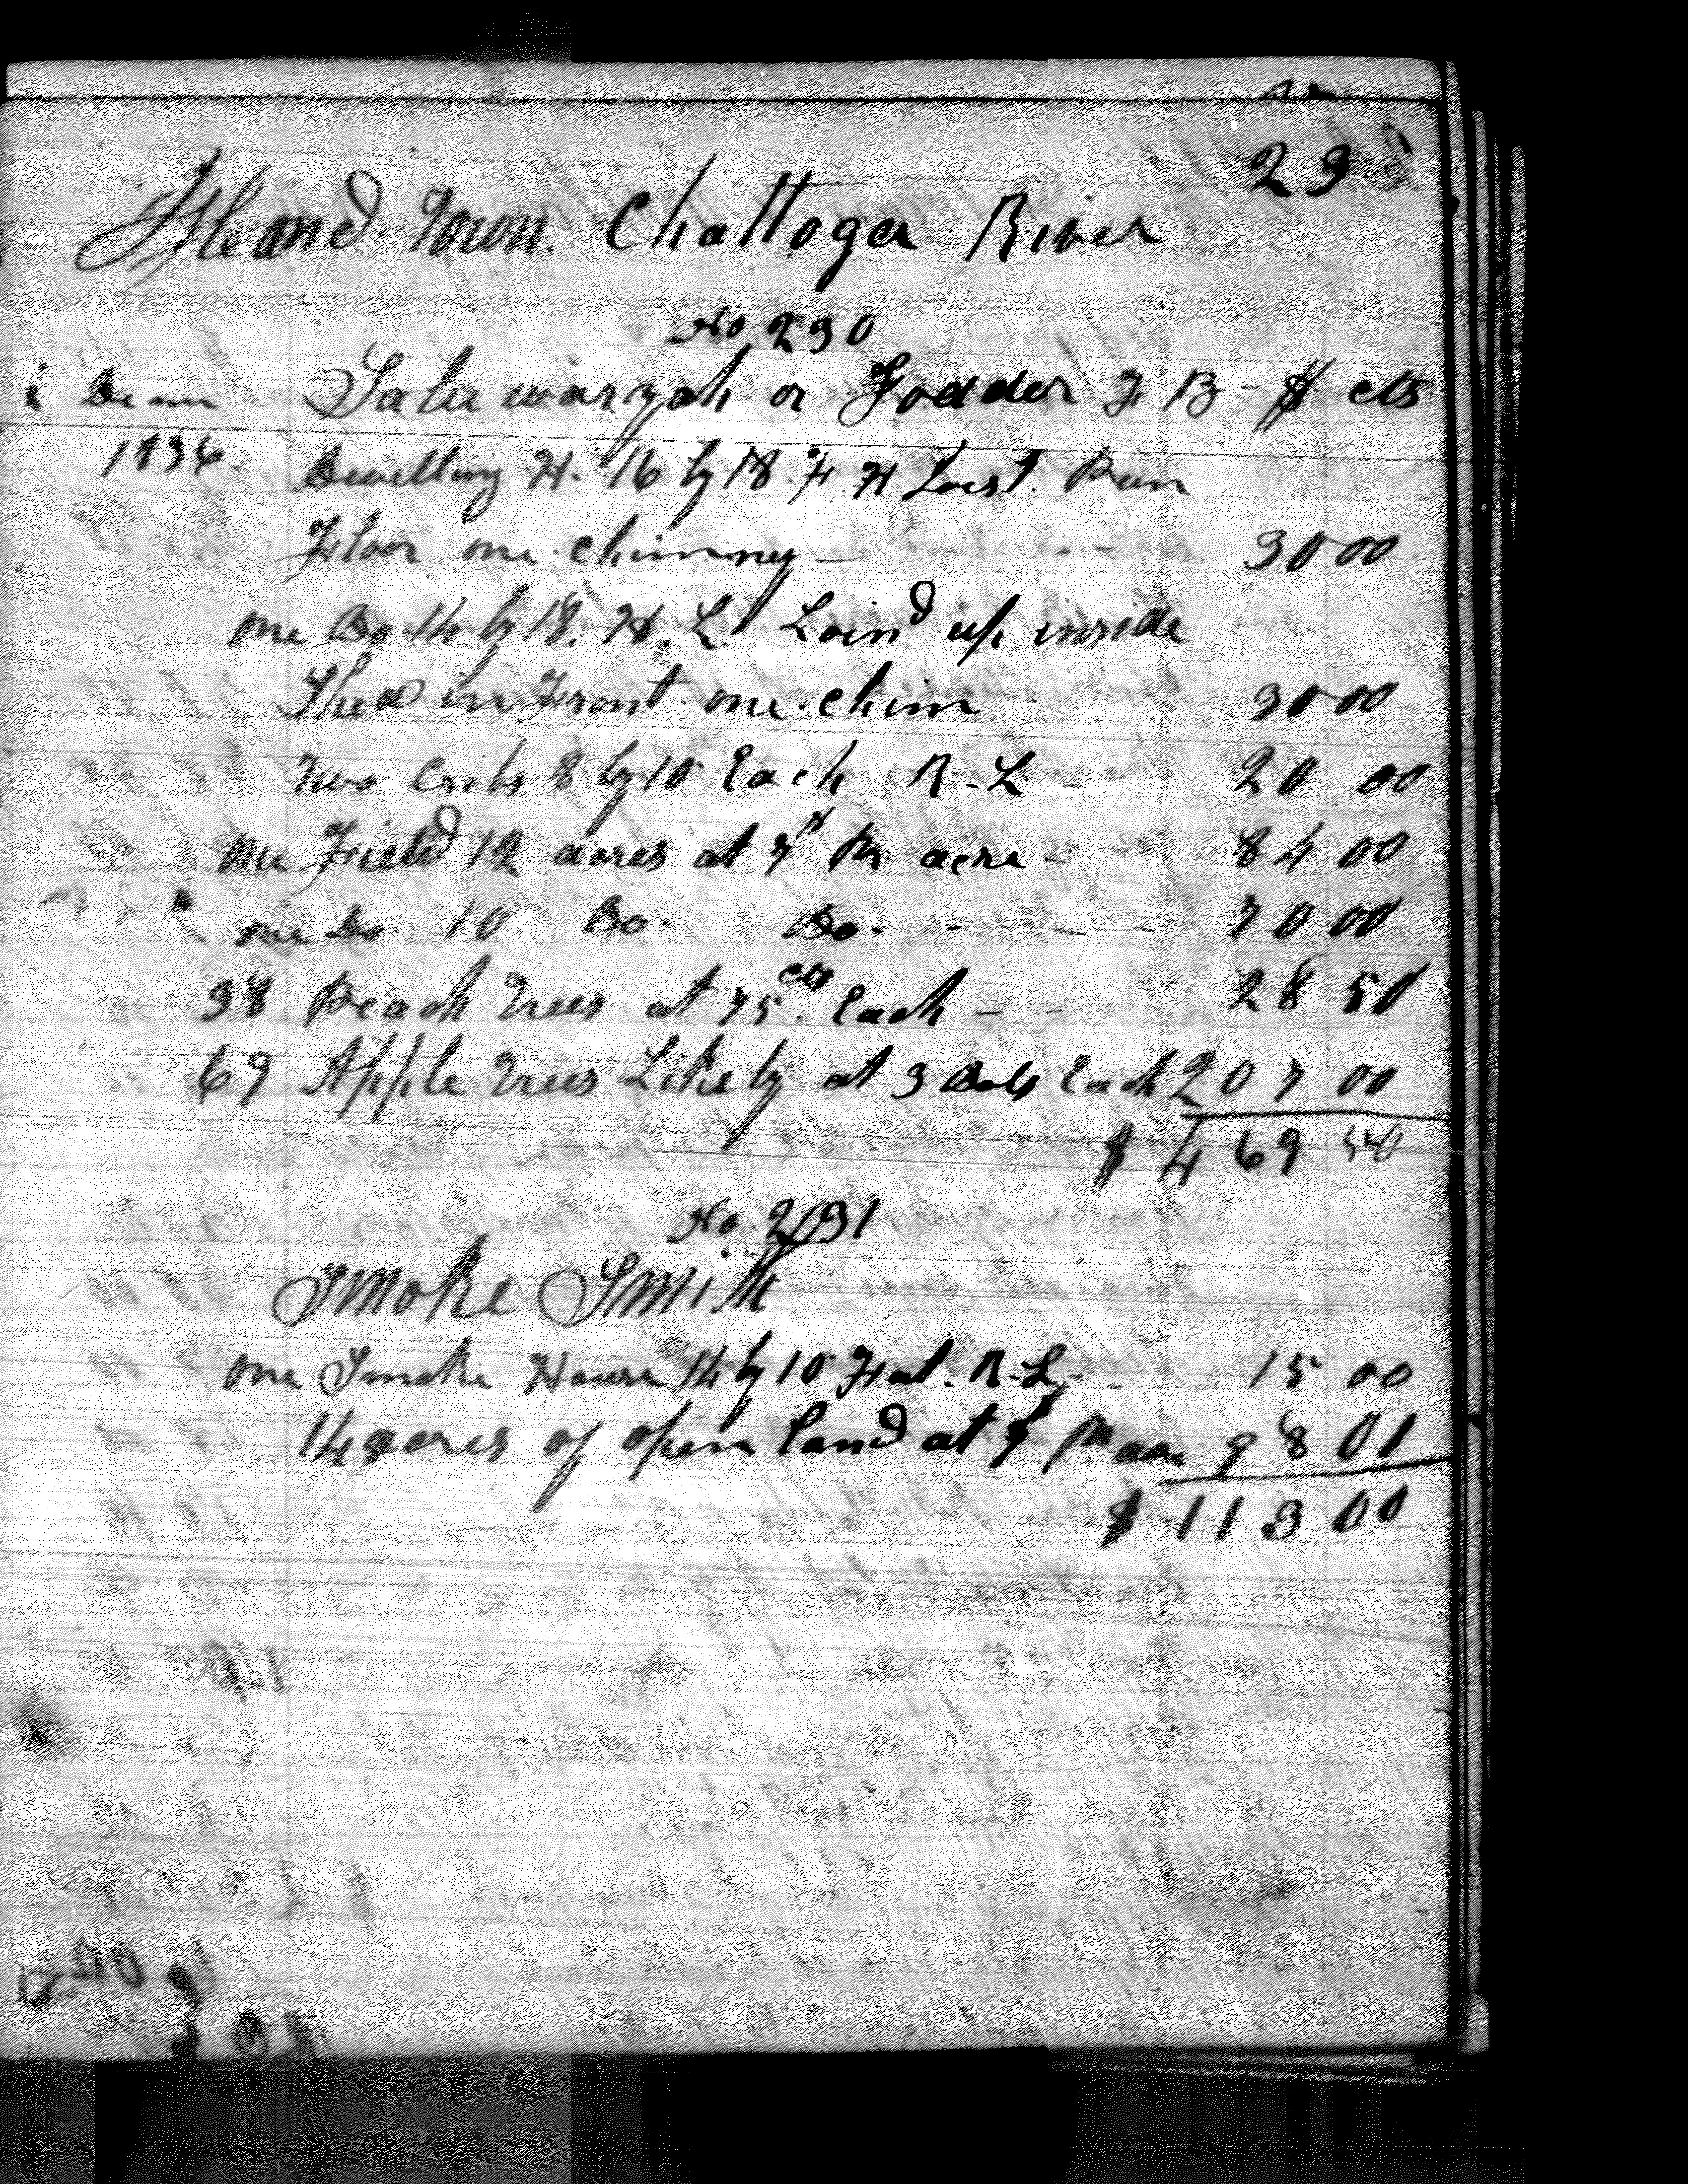 23
Island Town Chattoga River
No 230
Saluwaryah or Fodder F B - $ cts
1836. Dwelling H. 16 by 18. F. H Loist. Pun
Floor one chimney — 30 00
one Do. 14 by 18. H. L. Loind up inside
Shed in Front one chim 30 00
Two Cribs 8 by 10 Each R-L - 20 00
one Field 12 acres at 7$ Pr acre - 84 00
one Do. 10 Do. Do. - - - - 70 00
38 Peach Trees at 75 cts Each - - 28 50
69 Apple Trees Likely at 3 Dols Each 207 00
$ 469 50
No. 231
Smoke Smith
one Smoke House 14 by 10 Feet. R-L - - 15 00
14 acres of open land at 7$ Pr acre 98 00
$ 113 00